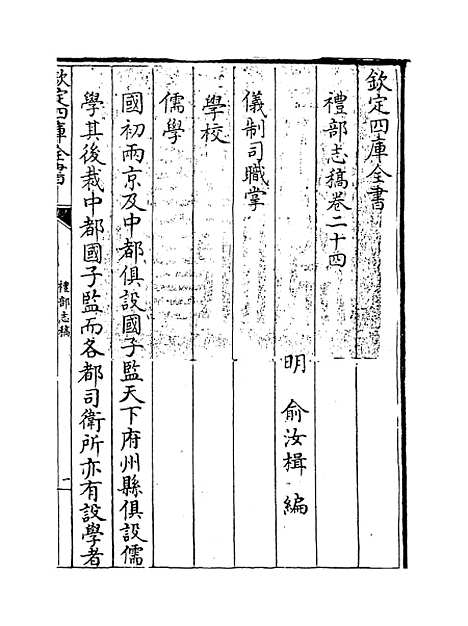 欽定四庫全書
禮部志稿卷二十四
明 俞汝楫 編
儀制司職掌
學校
儒學
國初兩京及中都俱設國子監天下府州縣俱設儒
學其後裁中都國子監而各都司衛所亦有設學者
欽定四庫全書
禮部志稿